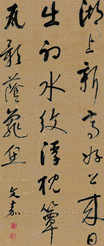 湖上新亭好公來日
出初水紋浮枕簟
瓦影蔭龜魚 文嘉